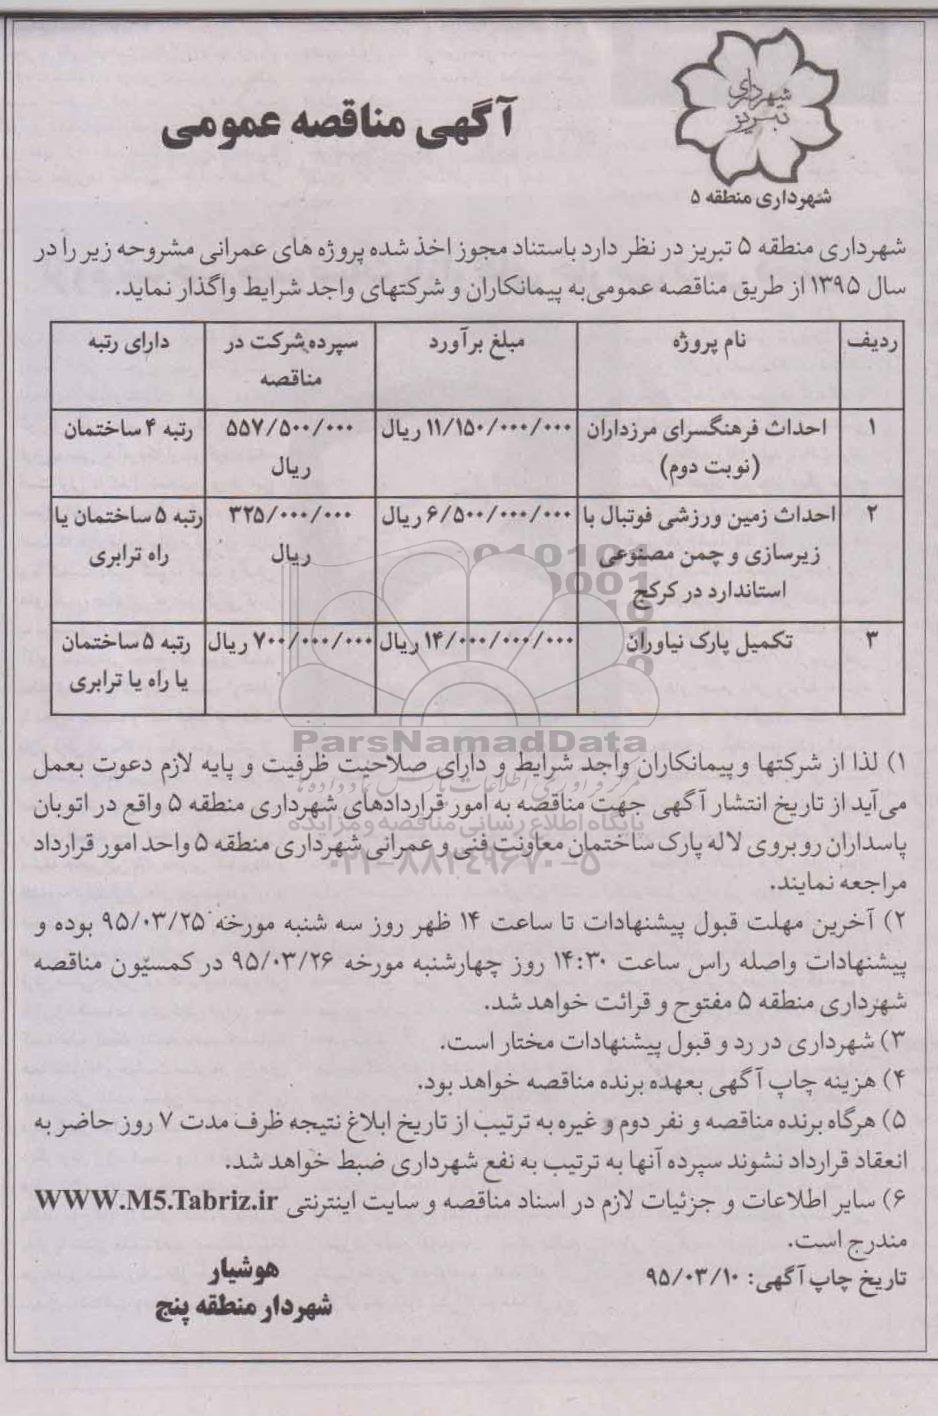 شهرداری
تبریز
شهرداری منطقه ۵
آگهی مناقصه عمومی
شهرداری منطقه ۵ تبریز در نظر دارد باستناد مجوز اخذ شده پروژه های عمرانی مشروحه زیر را در
سال ۱۳۹۵ از طریق مناقصه عمومی به پیمانکاران و شرکتهای واجد شرایط واگذار نماید.
ردیف نام پروژه مبلغ برآورد سپرده شرکت در مناقصه دارای رتبه
۱ احداث فرهنگسرای مرزداران (نوبت دوم) ۱۱/۱۵۰/۰۰۰/۰۰۰ ریال ۵۵۷/۵۰۰/۰۰۰ ریال رتبه ۴ ساختمان
۲ احداث زمین ورزشی فوتبال با زیرسازی و چمن مصنوعی استاندارد در کرکج ۶/۵۰۰/۰۰۰/۰۰۰ ریال ۳۲۵/۰۰۰/۰۰۰ ریال رتبه ۵ ساختمان یا راه ترابری
۳ تکمیل پارک نیاوران ۱۴/۰۰۰/۰۰۰/۰۰۰ ریال ۷۰۰/۰۰۰/۰۰۰ ریال رتبه ۵ ساختمان یا راه یا ترابری
ParsNamadData
پایگاه اطلاع رسانی مناقصه و مزایده
۰۲۱-۸۸۳۴۹۶۷۰-۵
۱) لذا از شرکتها و پیمانکاران واجد شرایط و دارای صلاحیت ظرفیت و پایه لازم دعوت بعمل
می‌آید از تاریخ انتشار آگهی جهت مناقصه به امور قراردادهای شهرداری منطقه ۵ واقع در اتوبان
پاسداران روبروی لاله پارک ساختمان معاونت فنی و عمرانی شهرداری منطقه ۵ واحد امور قرارداد
مراجعه نمایند.
۲) آخرین مهلت قبول پیشنهادات تا ساعت ۱۴ ظهر روز سه شنبه مورخه ۹۵/۰۳/۲۵ بوده و
پیشنهادات واصله راس ساعت ۱۴:۳۰ روز چهارشنبه مورخه ۹۵/۰۳/۲۶ در کمسیون مناقصه
شهرداری منطقه ۵ مفتوح و قرائت خواهد شد.
۳) شهرداری در رد و قبول پیشنهادات مختار است.
۴) هزینه چاپ آگهی بعهده برنده مناقصه خواهد بود.
۵) هرگاه برنده مناقصه و نفر دوم و غیره به ترتیب از تاریخ ابلاغ نتیجه ظرف مدت ۷ روز حاضر به
انعقاد قرارداد نشوند سپرده آنها به ترتیب به نفع شهرداری ضبط خواهد شد.
۶) سایر اطلاعات و جزئیات لازم در اسناد مناقصه و سایت اینترنتی WWW.M5.Tabriz.ir
مندرج است.
تاریخ چاپ آگهی: ۹۵/۰۳/۱۰
هوشیار
شهردار منطقه پنج